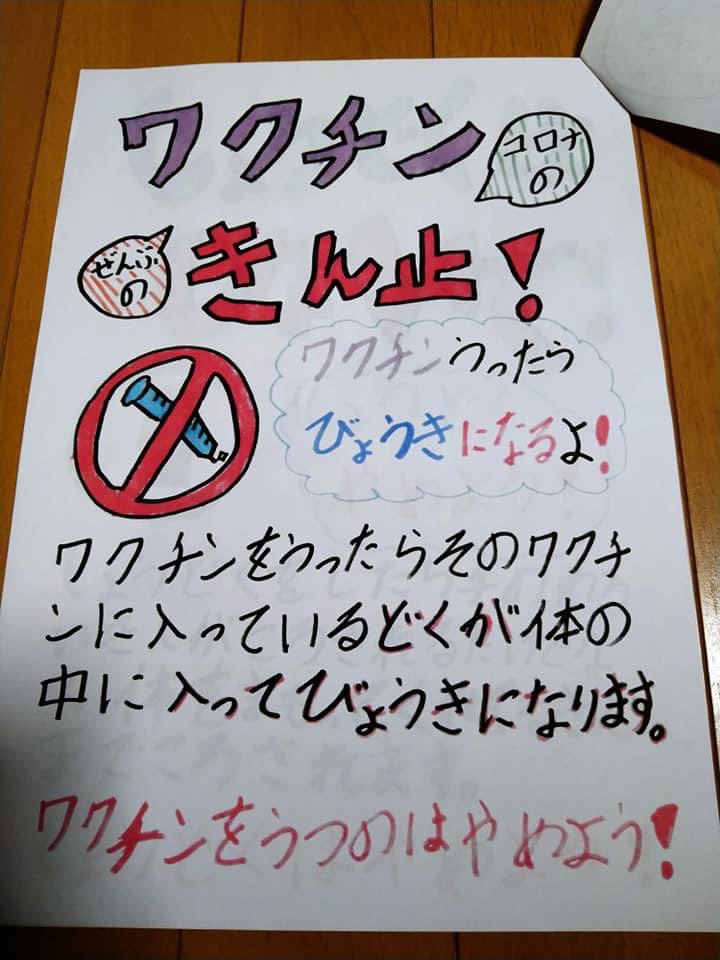 ワクチン
コロナの
ぜんぶの
きん止!
ワクチンうったら
びょうきになるよ!
ワクチンをうったらそのワクチ
ンに入っているどくが体の
中に入ってびょうきになります。
ワクチンをうつのはやめよう!